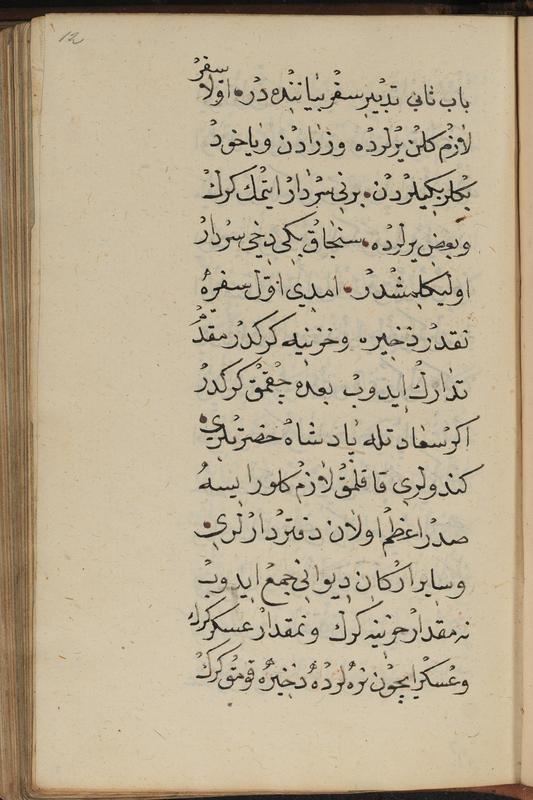 12
باب ثانى تدبير سفر بياننده در اولا سفر
لازم كلن يرلرده وزرادن وياخود
بكلربكيلردن برنى سردار ايتمك كرك
وبعض يرلرده سنجاق بكى دخى سردار
اوليكلمشدر امدى اول سفره
نقدر ذخيره وخزينه كركدر مقدم
تدارك ايدوب بعده چقمق كركدر
اكر سعادتله پادشاه حضرتلرى
كندولرى قالقمق لازم كلور ايسه
صدراعظم اولان دفتردارلرى
وساير اركان ديوانى جمع ايدوب
نه مقدار خزينه كرك ونمقدار عسكر كرك
وعسكر ايچون نره لرده ذخيره قومق كرك